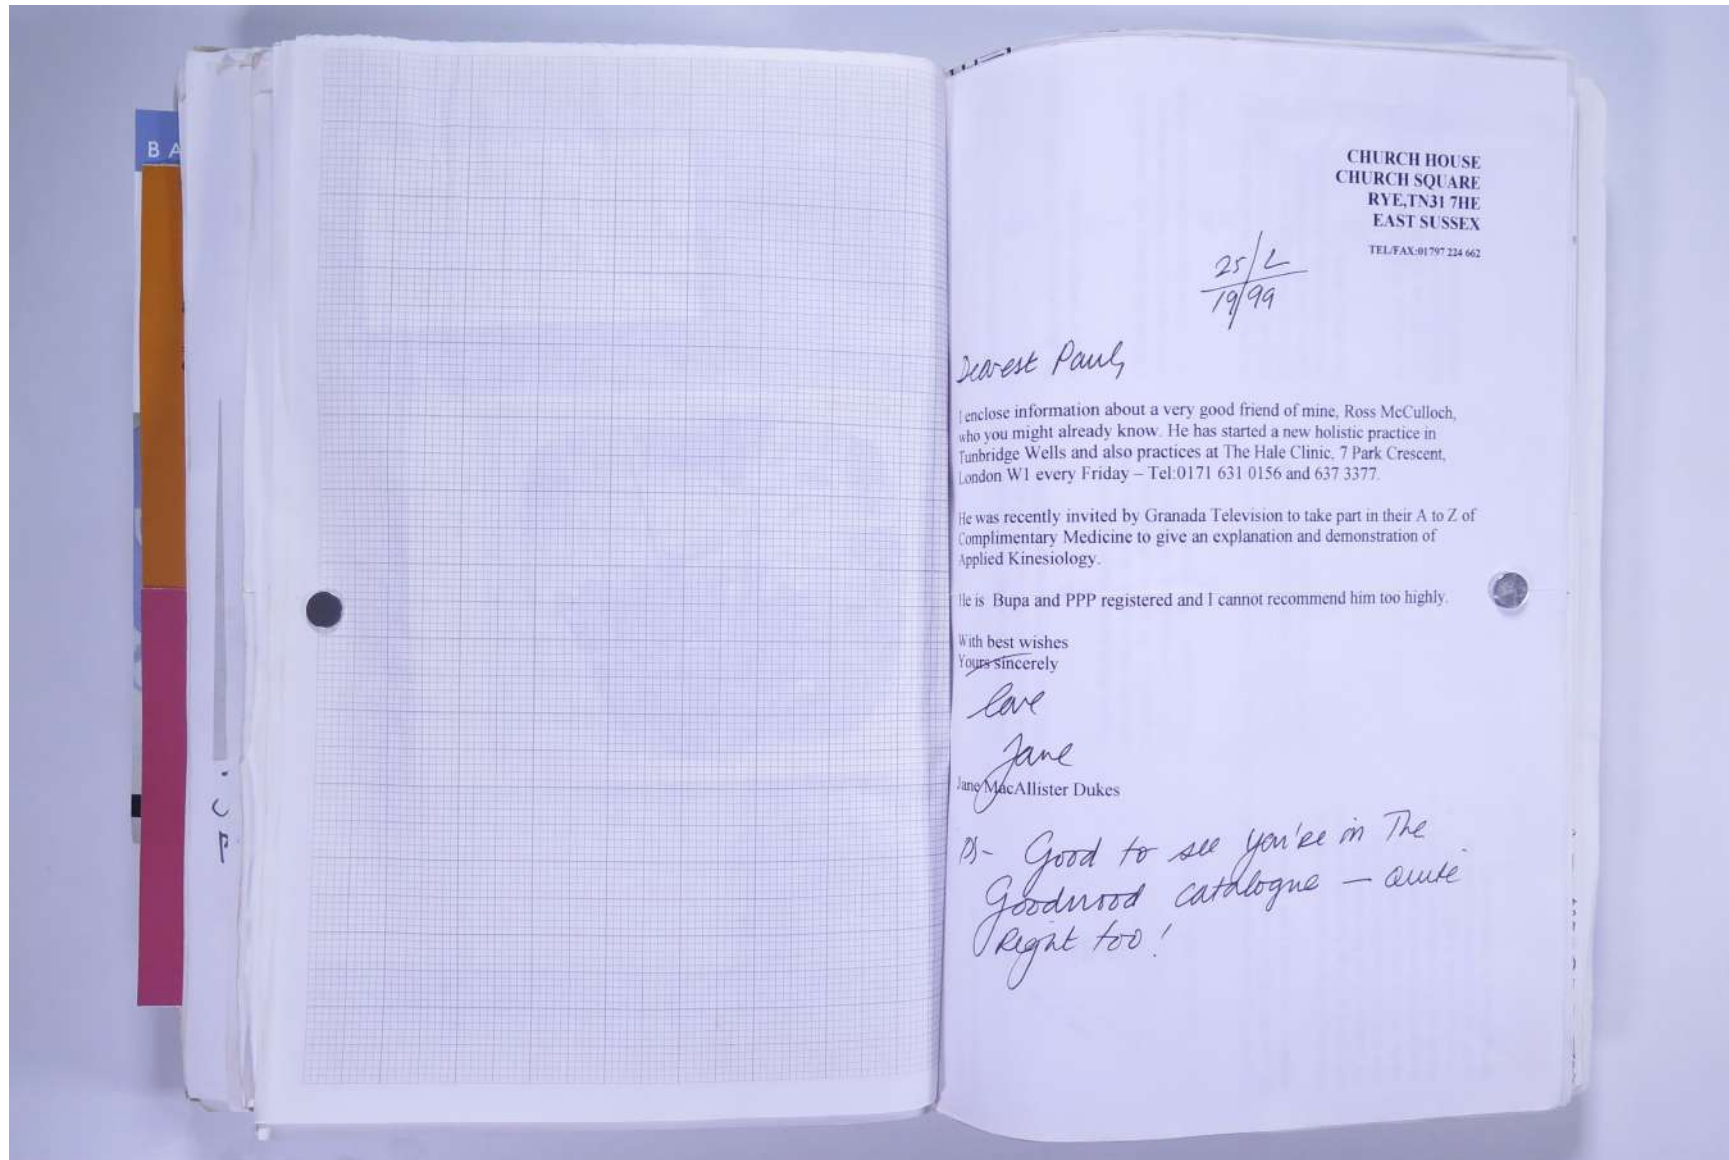 BA
CHURCH HOUSE
CHURCH SQUARE
RYE,TN31 7HE
EAST SUSSEX
TEL/FAX:01797 224 662
25/2
19/99
Dearest Paul,
I enclose information about a very good friend of mine, Ross McCulloch,
who you might already know. He has started a new holistic practice in
Tunbridge Wells and also practices at The Hale Clinic, 7 Park Crescent,
London W1 every Friday – Tel:0171 631 0156 and 637 3377.
He was recently invited by Granada Television to take part in their A to Z of
Complimentary Medicine to give an explanation and demonstration of
Applied Kinesiology.
He is Bupa and PPP registered and I cannot recommend him too highly.
With best wishes
Yours sincerely
love
Jane
Jane MacAllister Dukes
PS- Good to see you're in The
Goodwood catalogue — quite
Right too!